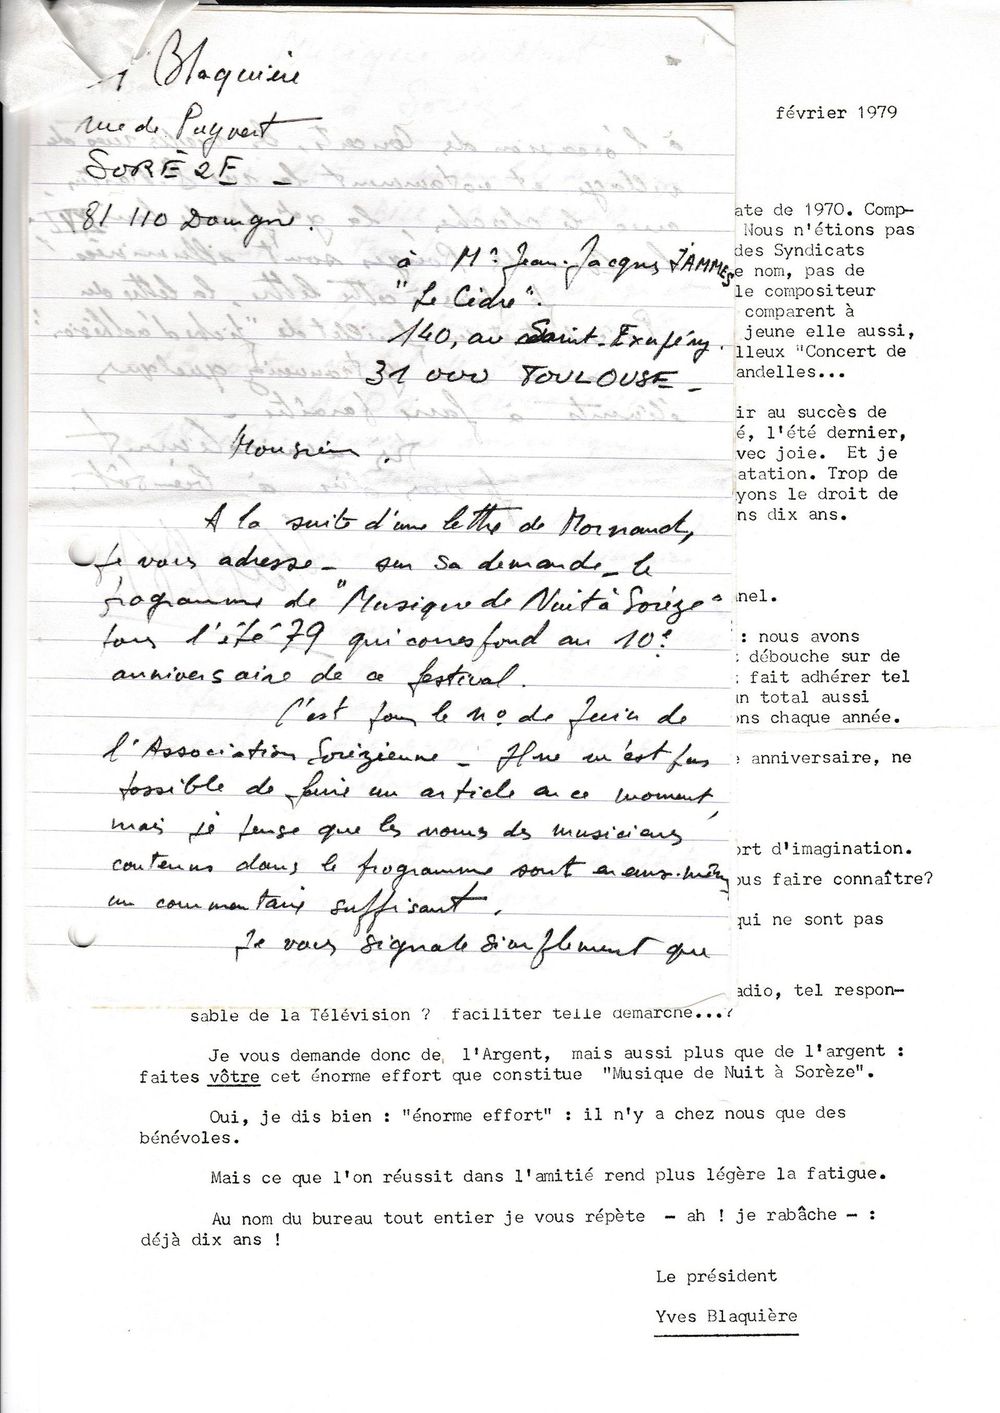 Blaquière
rue de Puyvert
SORÈZE -
81 110 Dourgne.
à Mr. Jean-Jacques JAMMES
"Le Cèdre".
140, av Saint-Exupéry.
31 000 TOULOUSE -
Monsieur,
A la suite d'une lettre de Mornand,
je vous adresse - sur sa demande - le
programme de "Musique de Nuit à Sorèze"
pour l'été 79 qui correspond au 10e
anniversaire de ce festival.
C'est pour le no de Juin de
l'Association Sorézienne - Il ne m'est pas
possible de faire un article en ce moment,
mais je pense que les noms des musiciens
contenus dans le programme sont en eux-mêm
un commentaire suffisant.
Je vous signale simplement que
février 1979
ate de 1970. Comp-
Nous n'étions pas
des Syndicats
e nom, pas de
le compositeur
comparent à
jeune elle aussi,
lleux "Concert de
andelles...
ir au succès de
é, l'été dernier,
vec joie. Et je
atation. Trop de
yons le droit de
ns dix ans.
nnel.
: nous avons
débouche sur de
fait adhérer tel
un total aussi
ons chaque année.
anniversaire, ne
ort d'imagination.
ous faire connaître?
qui ne sont pas
adio, tel respon-
sable de la Télévision ? faciliter telle démarche...?
Je vous demande donc de l'Argent, mais aussi plus que de l'argent :
faites vôtre cet énorme effort que constitue "Musique de Nuit à Sorèze".
Oui, je dis bien : "énorme effort" : il n'y a chez nous que des
bénévoles.
Mais ce que l'on réussit dans l'amitié rend plus légère la fatigue.
Au nom du bureau tout entier je vous répète - ah ! je rabâche - :
déjà dix ans !
Le président
Yves Blaquière